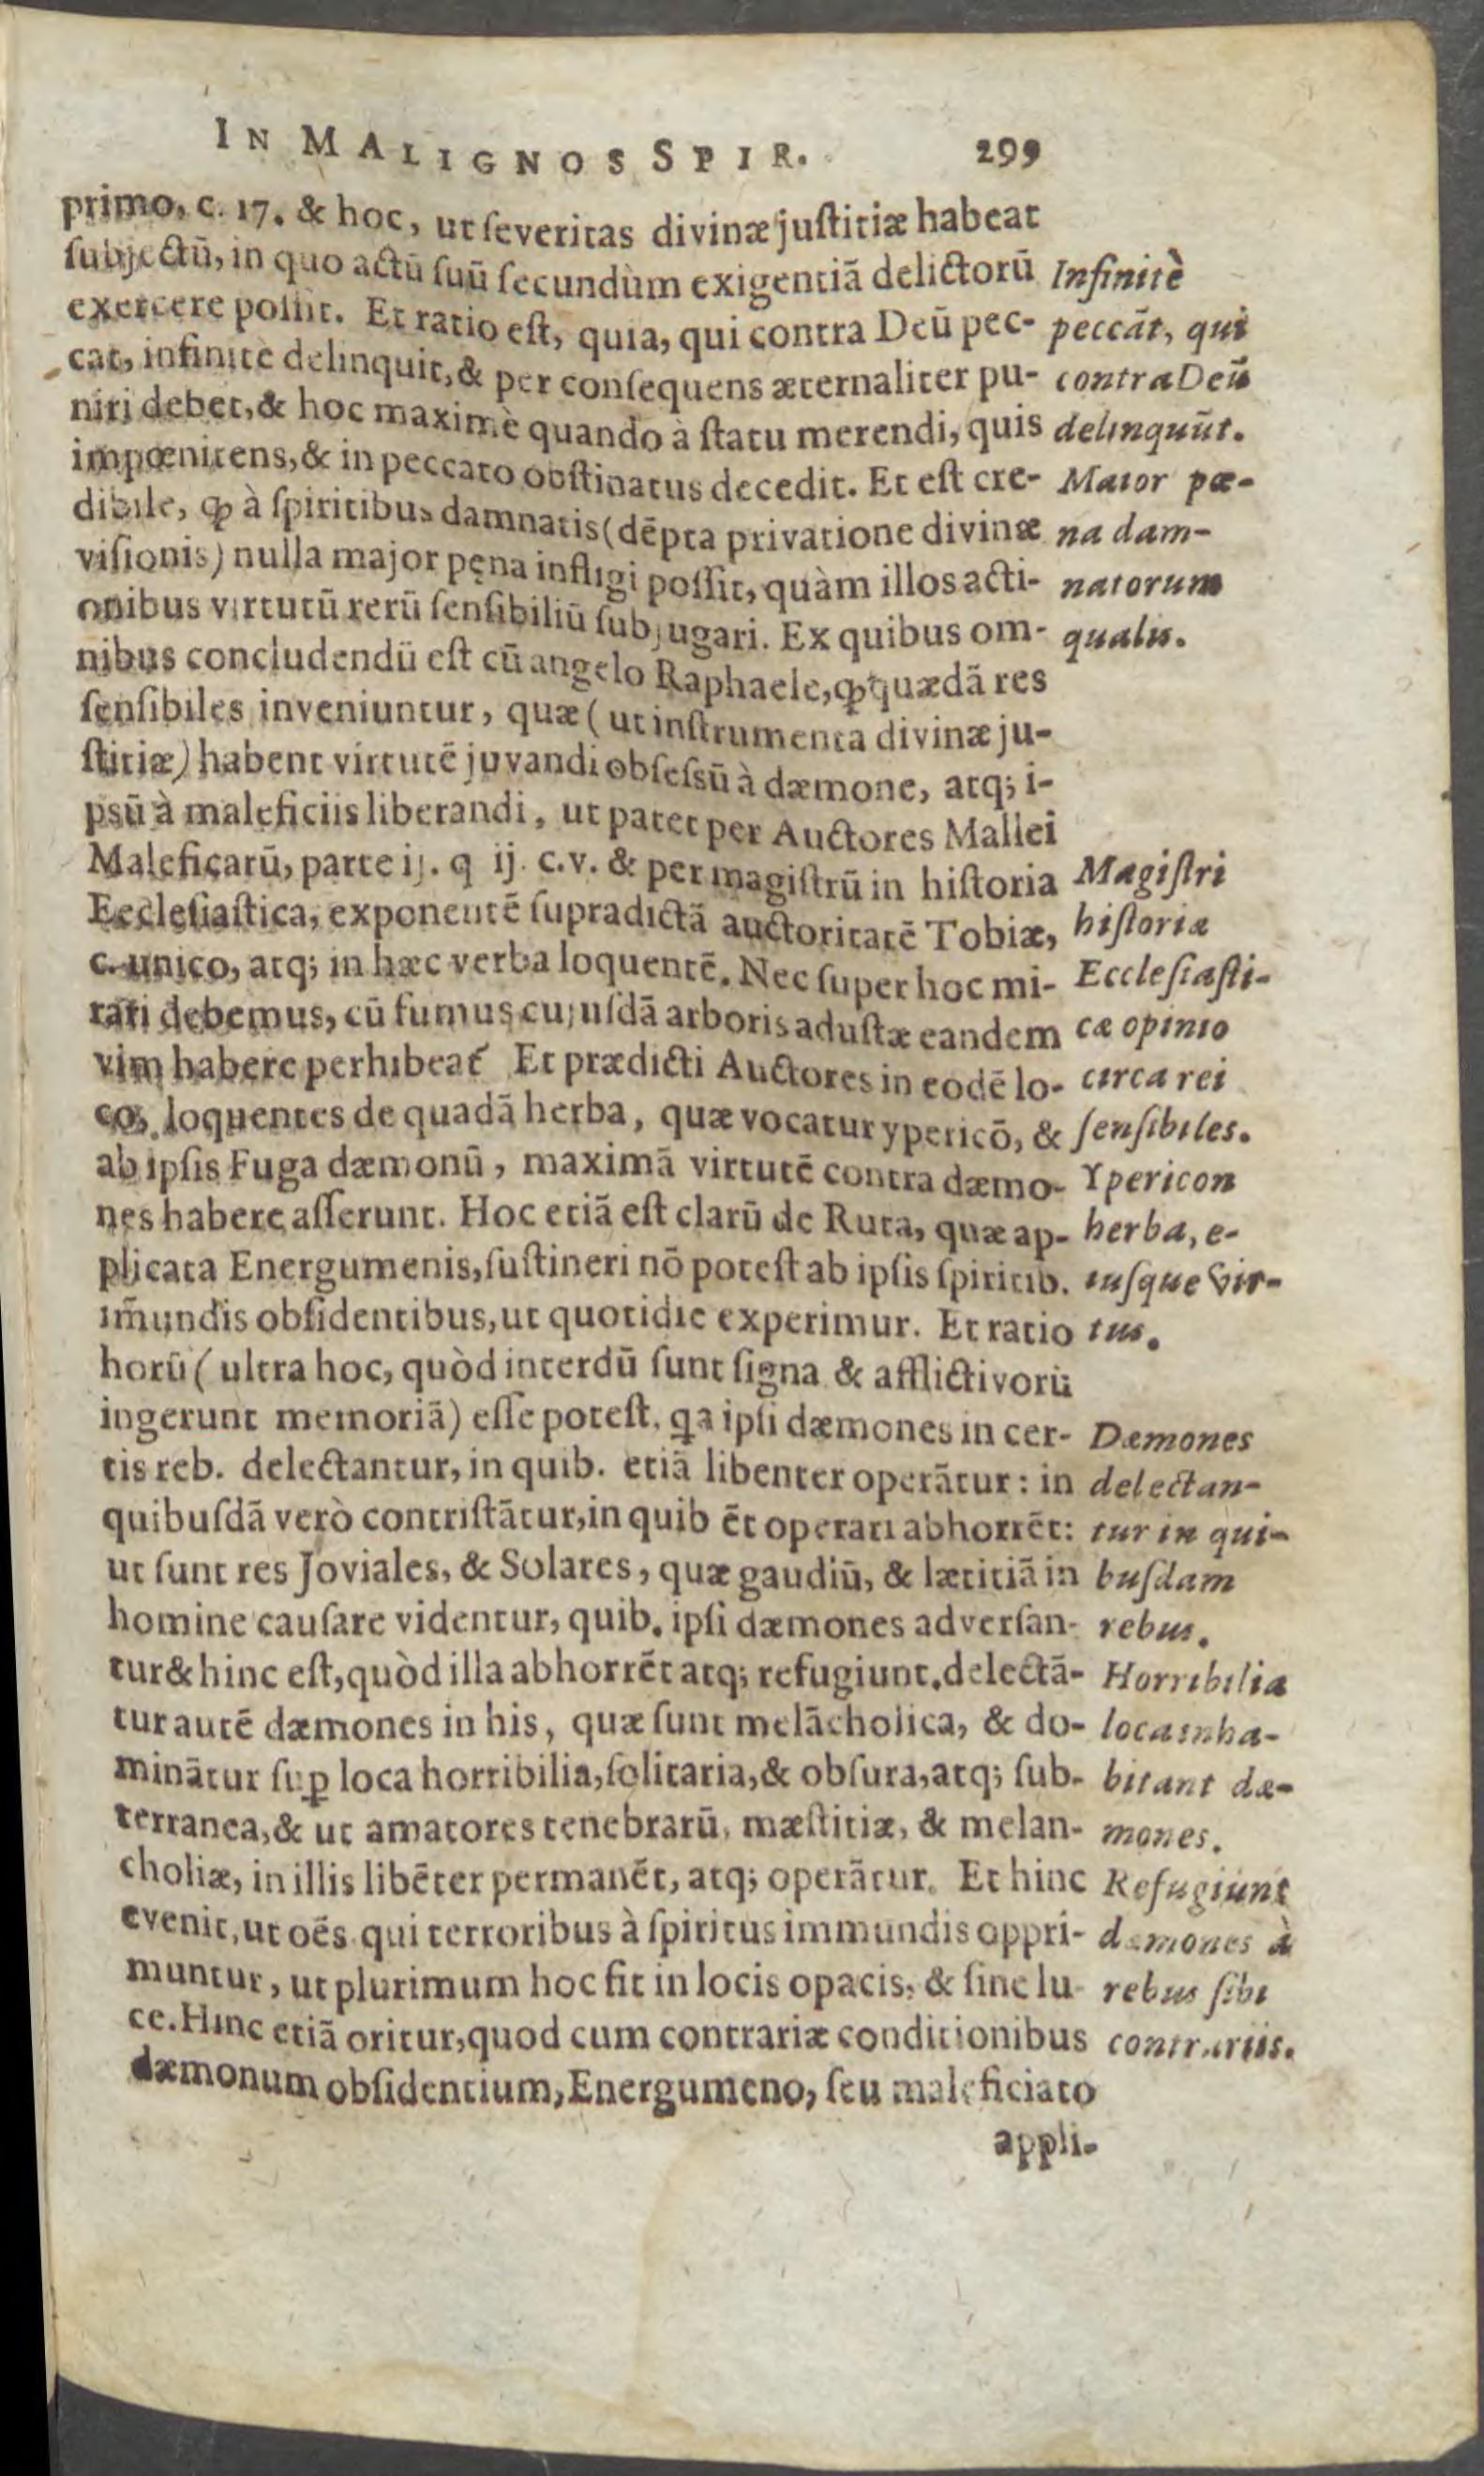 IN MALIGNOS SPIR. 299
primo, c. 17. & hoc, ut ſeveritas divinæ juſtitiæ habeat
ſubjectū, in quo actū ſuū ſecundùm exigentiā delictorū
exercere poſſit. Et ratio eſt, quia, qui contra Deū pec-
cat, infinitè delinquit, & per conſequens æternaliter pu-
niri debet, & hoc maximè quando à ſtatu merendi, quis
impœnitens, & in peccato obſtinatus decedit. Et eſt cre-
dibile, ꝙ à ſpiritibus damnatis (dēpta privatione divinæ
viſionis) nulla major pęna infligi poſſit, quàm illos acti-
onibus virtutū rerū ſenſibiliū ſubjugari. Ex quibus om-
nibus concludendū eſt cū angelo Raphaele, ꝙ quædā res
ſenſibiles inveniuntur, quæ (ut inſtrumenta divinæ ju-
ſtitiæ) habent virtutē juvandi obſeſsū à dæmone, atq; i-
psū à maleficiis liberandi, ut patet per Auctores Mallei
Maleficarū, parte ij. q ij. c.v. & per magiſtrū in hiſtoria
Eccleſiaſtica, exponentē ſupradictā auctoritatē Tobiæ,
c. unico, atq; in hæc verba loquentē. Nec ſuper hoc mi-
rari debemus, cū fumus cujuſdā arboris aduſtæ eandem
vim habere perhibeat᷑ Et prædicti Auctores in eodē lo-
co, loquentes de quadā herba, quæ vocatur ypericō, &
ab ipſis Fuga dæmonū, maximā virtutē contra dæmo-
nes habere aſſerunt. Hoc etiā eſt clarū de Ruta, quæ ap-
plicata Energumenis, ſuſtineri nō poteſt ab ipſis ſpiritib.
im̄undis obſidentibus, ut quotidie experimur. Et ratio
horū (ultra hoc, quòd interdū ſunt ſigna & afflictivorū
ingerunt memoriā) eſſe poteſt. ꝗa ipſi dæmones in cer-
tis reb. delectantur, in quib. etiā libenter operātur: in
quibuſdā verò contriſtātur, in quib ēt operari abhorrēt:
ut ſunt res Joviales, & Solares, quæ gaudiū, & lætitiā in
homine cauſare videntur, quib. ipſi dæmones adverſan-
tur & hinc eſt, quòd illa abhorrēt atq; refugiunt. delectā-
tur autē dæmones in his, quæ ſunt melācholica, & do-
minātur ſuꝑ loca horribilia, ſolitaria, & obſura, atq; ſub-
terranea, & ut amatores tenebrarū, mæſtitiæ, & melan-
choliæ, in illis libēter permanēt, atq; operātur. Et hinc
evenit, ut oēs qui terroribus à ſpiritus immundis oppri-
muntur, ut plurimum hoc fit in locis opacis, & ſine lu-
ce. Hinc etiā oritur, quod cum contrariæ conditionibus
dæmonum obſidentium, Energumeno, ſeu maleficiato
appli-
Infinitè
peccāt, qui
contra Deū
delinquūt.
Maior pœ-
na dam-
natorum
qualis.
Magiſtri
hiſtoriæ
Eccleſiaſti-
cæ opinio
circa rei
ſenſibiles.
Ypericon
herba, e-
iuſque vir-
tus.
Dæmones
delectan-
tur in qui-
buſdam
rebus.
Horribilia
loca inha-
bitant dæ-
mones.
Refugiunt
dæmones à
rebus ſibi
contrariis.